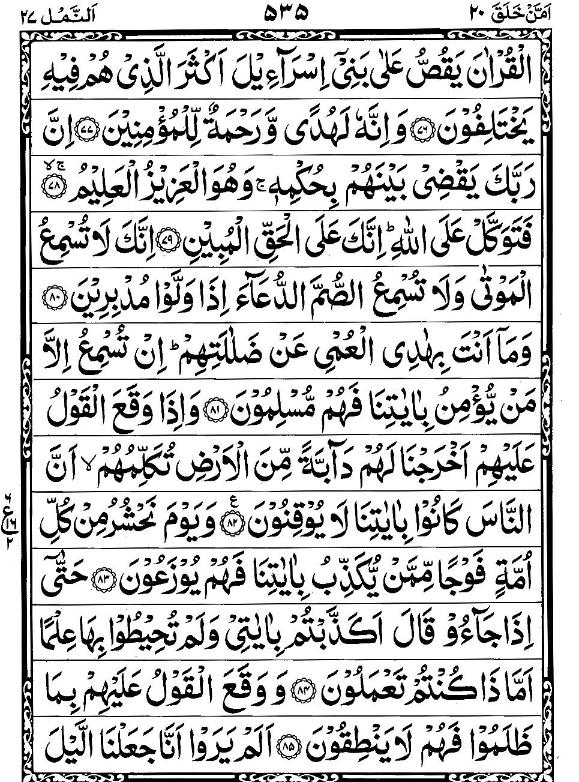 اَمَّنْ خَلَقَ ٢٠ ٥٣٥ اَلنَّمْل ٢٧
الْقُرْاٰنَ يَقُصُّ عَلٰى بَنِیْۤ اِسْرَآءِيْلَ اَكْثَرَ الَّذِیْ هُمْ فِيْهِ
يَخْتَلِفُوْنَ ﴿٧٦﴾ وَ اِنَّهٗ لَهُدًى وَّ رَحْمَةٌ لِّلْمُؤْمِنِيْنَ ﴿٧٧﴾ اِنَّ
رَبَّكَ يَقْضِیْ بَيْنَهُمْ بِحُكْمِهٖ ۚ وَهُوَ الْعَزِيْزُ الْعَلِيْمُ ﴿٧٨﴾ ۙۚ
فَتَوَكَّلْ عَلَى اللّٰهِ ؕ اِنَّكَ عَلَى الْحَقِّ الْمُبِيْنِ ﴿٧٩﴾ اِنَّكَ لَا تُسْمِعُ
الْمَوْتٰى وَلَا تُسْمِعُ الصُّمَّ الدُّعَآءَ اِذَا وَلَّوْا مُدْبِرِيْنَ ﴿٨٠﴾
وَمَاۤ اَنْتَ بِهٰدِی الْعُمْیِ عَنْ ضَلٰلَتِهِمْ ؕ اِنْ تُسْمِعُ اِلَّا
مَنْ يُّؤْمِنُ بِاٰيٰتِنَا فَهُمْ مُّسْلِمُوْنَ ﴿٨١﴾ وَاِذَا وَقَعَ الْقَوْلُ
عَلَيْهِمْ اَخْرَجْنَا لَهُمْ دَآبَّةً مِّنَ الْاَرْضِ تُكَلِّمُهُمْ ۙ اَنَّ
النَّاسَ كَانُوْا بِاٰيٰتِنَا لَا يُوْقِنُوْنَ ﴿٨٢﴾ ع وَيَوْمَ نَحْشُرُ مِنْ كُلِّ
٦ ع ١٦ ٢
اُمَّةٍ فَوْجًا مِّمَّنْ يُّكَذِّبُ بِاٰيٰتِنَا فَهُمْ يُوْزَعُوْنَ ﴿٨٣﴾ حَتّٰىۤ
اِذَا جَآءُوْ قَالَ اَكَذَّبْتُمْ بِاٰيٰتِیْ وَلَمْ تُحِيْطُوْا بِهَا عِلْمًا
اَمَّا ذَا كُنْتُمْ تَعْمَلُوْنَ ﴿٨٤﴾ وَ وَقَعَ الْقَوْلُ عَلَيْهِمْ بِمَا
ظَلَمُوْا فَهُمْ لَا يَنْطِقُوْنَ ﴿٨٥﴾ اَلَمْ يَرَوْا اَنَّا جَعَلْنَا الَّيْلَ